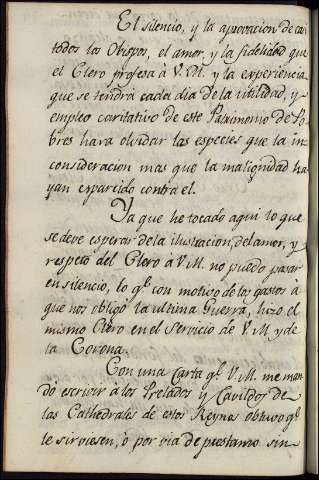 El silencio, y la aprovacion de ca
todos los Obispos, el amor, y la fidelidad que
el Clero profesa à V.M. y la experiencia
que se tendrà cada dia de la utilidad, y
empleo caritativo de este Patrimonio de Po
bres hara olvidar las especies que la in
consideracion mas que la malignidad ha
yan esparcido contra el.
Ya que he tocado aqui lo que
se deve esperar de la ilustracion, del amor, y
respeto del Clero à V.M. no puedo pasar
en silencio, lo q.e con motivo de los gastos à
que nos obligò la ultima Guerra, hizo el
mismo Clero en el Servicio de V.M. y de
la Corona.
Con una Carta q.e V.M. me man
dò escrivir à los Prelados y Cavildos de
las Cathedrales de estos Reynos obtuvo q.e
le sirviesen, ò por via de prestamo sin